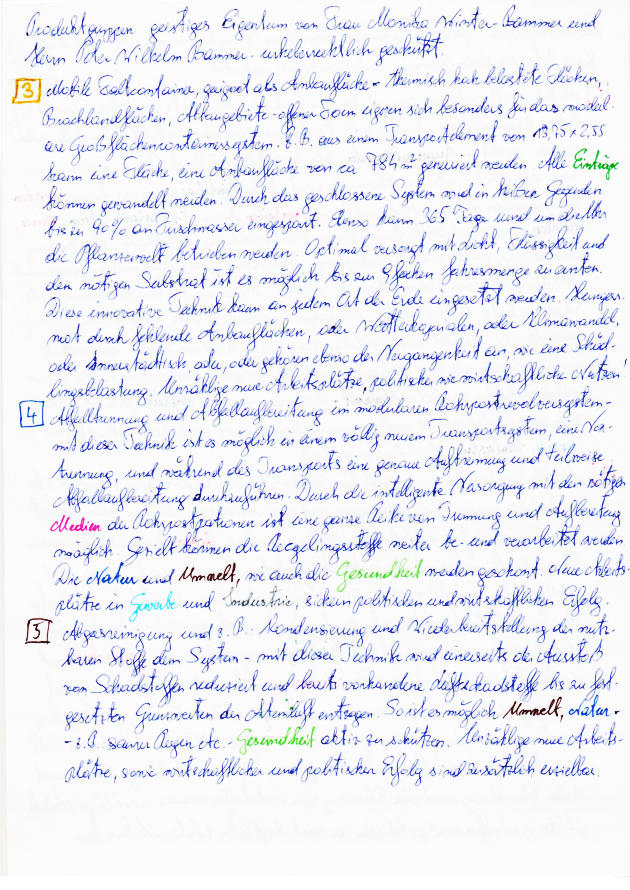 Produktgruppen geistiges Eigentum von Frau Monika Winter-Bammer und
Herrn Peter Wilhelm Bammer - urheberrechtlich geschützt.
3 Mobile Faltcontainer, geeignet als Anbaufläche - thermisch hoch belastete Flächen,
Brachlandflächen, Altbaugebiete - offener Form eignen sich besonders für das modul-
are Großflächencontainersystem. Z.B. aus einem Transportelement von 13,75 x 2,55
kann eine Fläche, eine Anbaufläche von ca 784 m² generiert werden. Alle Einträge
können gewandelt werden. Durch das geschlossene System wird in heißen Gegenden
bis zu 90% an Frischwasser eingespart. Ebenso kann 365 Tage rund um die Uhr
die Pflanzenwelt betrieben werden. Optimal versorgt mit Licht, Flüssigkeit und
den nötigen Substrat ist es möglich bis zur fachen Jahresmenge zu ernten.
Diese innovative Technik kann an jedem Ort der Erde eingesetzt werden. Hungers-
not durch fehlende Anbauflächen, oder Wetterkapriolen, oder Klimawandel,
oder Innerstädtisch, oder, oder gehören ebenso der Vergangenheit an, wie eine Schäd-
lingsbelastung. Unzählige neue Arbeitsplätze, politischer wie wirtschaftlicher Nutzen!
4 Abfalltrennung und Abfallaufbereitung im modularen Rohrpostrevolversystem -
mit dieser Technik ist es möglich in einem völlig neuem Transportsystem, eine Vor-
trennung, und während des Transports eine genaue Auftrennung und teilweise
Abfallaufbereitung durchzuführen. Durch die intelligente Versorgung mit den nötigen
Medien der Rohrpostpatronen ist eine ganze Reihe von Trennung und Aufbereitung
möglich. Gezielt können die Recyclingsstoffe weiter be- und verarbeitet werden
Die Natur und Umwelt, wie auch die Gesundheit werden geschont. Neue Arbeits-
plätze in Gewerbe und Industrie, sichern politischen und wirtschaftlichen Erfolg.
5 Abgasreinigung und z.B. Kondensierung und Wiederbereitstellung der nutz-
baren Stoffe dem System - mit dieser Technik wird einerseits der Ausstoß
von Schadstoffen reduziert und bereits vorhandene Luftschadstoffe bis zu fest-
gesetzten Grenzwerten der Atemluft entzogen. So ist es möglich Umwelt, Natur -
- z.B. saurer Regen etc. - Gesundheit aktiv zu schützen. Unzählige neue Arbeits-
plätze, sowie wirtschaftlicher und politischer Erfolg sind zusätzlich erzielbar.